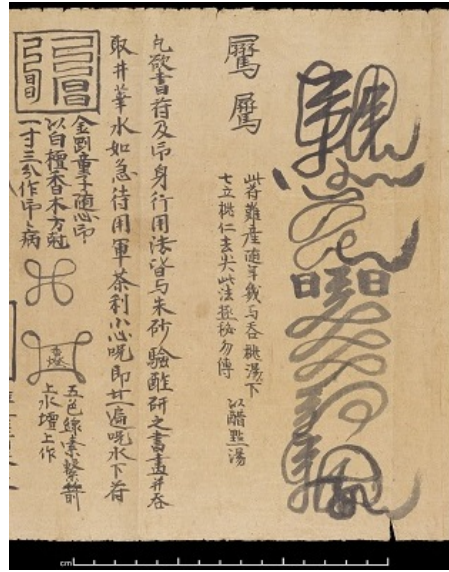 此符難產隨年幾与吞桃湯下 以醋點湯
七立桃仁去尖此法極秘勿傳
凡欲書符及印身行用法皆与朱砂驗醋研之書盡并吞
取井華水如急待用軍荼利小心呪即廿一遍呪水下符
金剛童子隨心印
以白檀香木方尅
一寸三分作印
五色線索繫箭
上水壇上作
cm